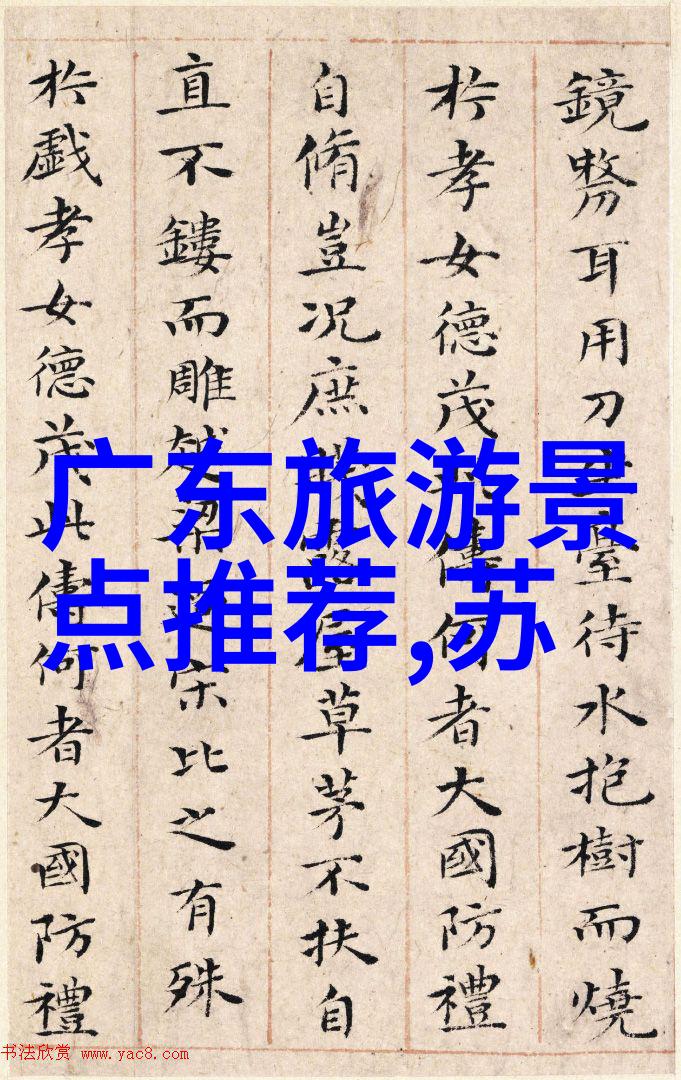 鏡剺耳用刀臺待水抱樹而燒
於孝女德茂儔何者大國防禮
自脩豈況庶屋草茅不扶自
直不鏤而雕越梁過宋比之有殊
於戲孝女德茂此儔何者大國防禮
广东旅游景
点推荐,苏
书法欣赏 www.yac8.com